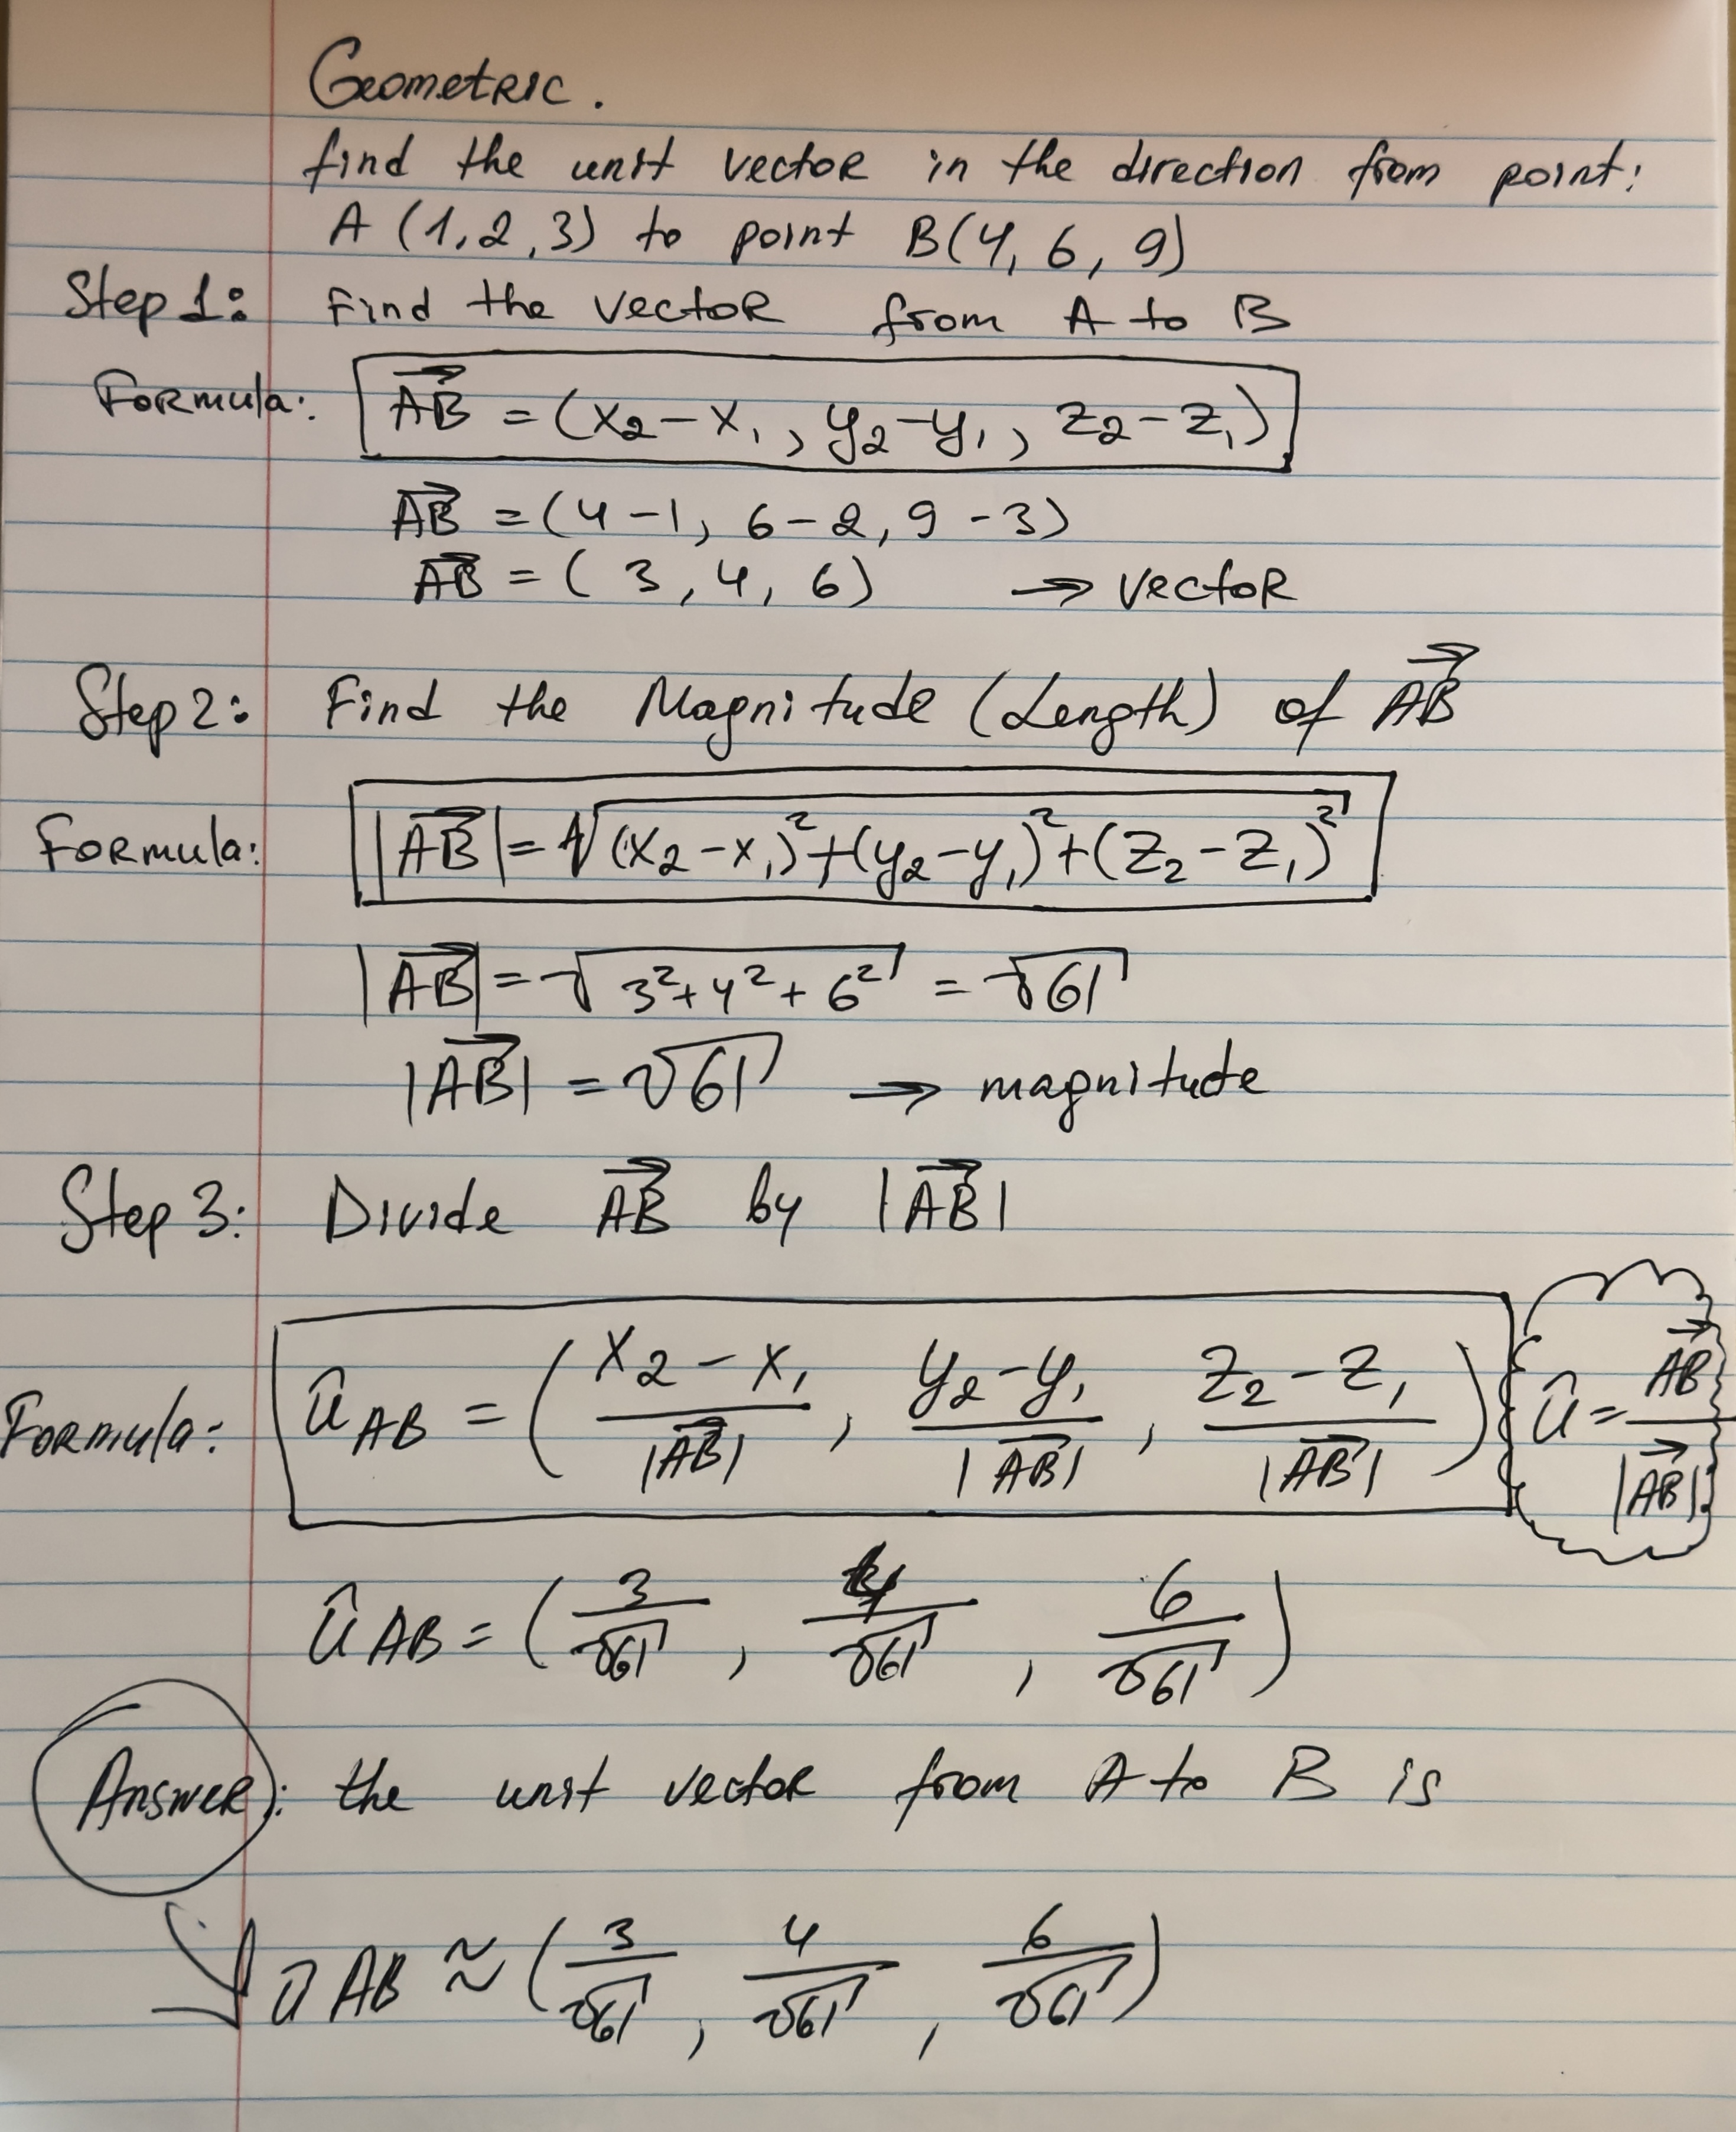 Geometric.
find the unit vector in the direction from point:
A (1,2,3) to point B(4, 6, 9)
Step 1: Find the vector from A to B
Formula: AB⃗ = (x₂-x₁, y₂-y₁, z₂-z₁)
AB⃗ = (4-1, 6-2, 9-3)
AB⃗ = (3, 4, 6) → vector
Step 2: Find the Magnitude (Length) of AB⃗
Formula: |AB⃗| = √((x₂-x₁)²+(y₂-y₁)²+(z₂-z₁)²)
|AB⃗| = √(3²+4²+6²) = √61
|AB⃗| = √61 → magnitude
Step 3: Divide AB⃗ by |AB⃗|
Formula: û AB = ((x₂-x₁)/|AB⃗|, (y₂-y₁)/|AB⃗|, (z₂-z₁)/|AB⃗|) û = AB⃗/|AB⃗|
û AB = (3/√61, 4/√61, 6/√61)
Answer: the unit vector from A to B is
û AB ≈ (3/√61, 4/√61, 6/√61)